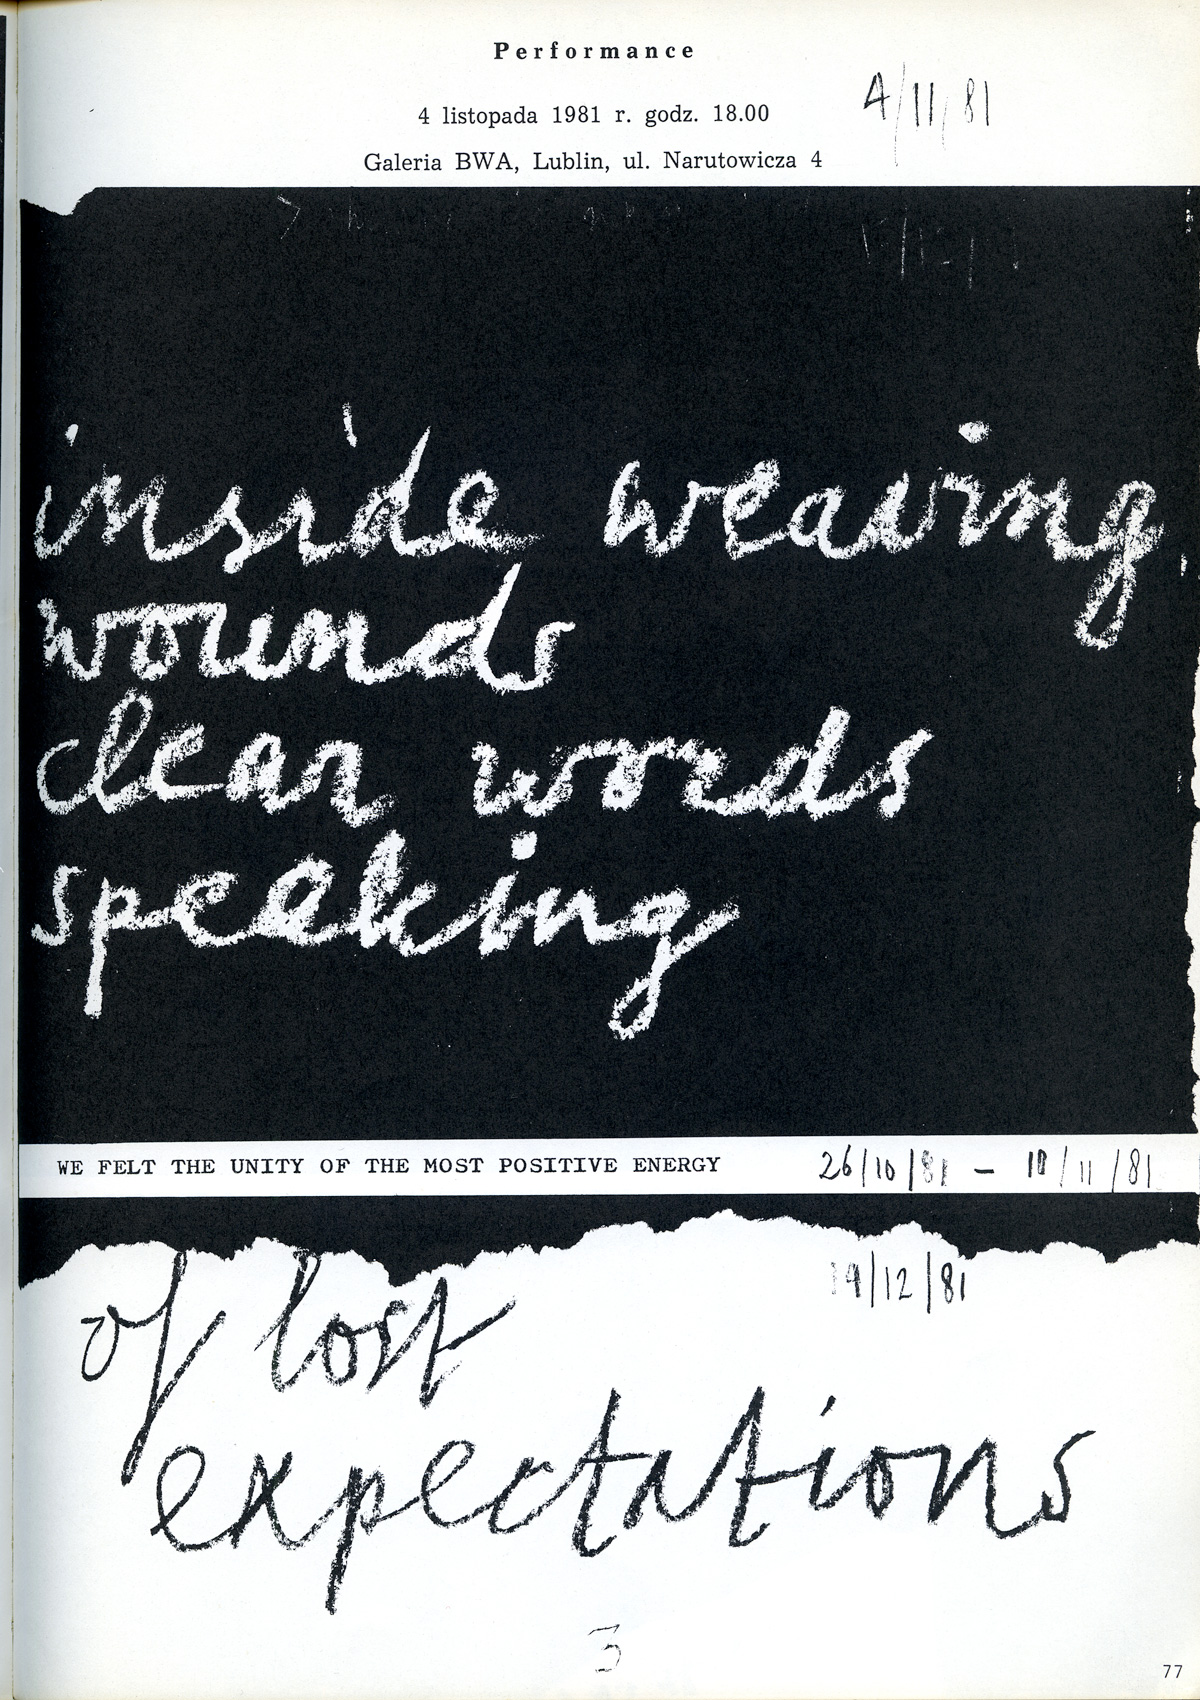 Performance
4 listopada 1981 r. godz. 18.00
4/11/81
Galeria BWA, Lublin, ul. Narutowicza 4
inside weaving
wounds
clear words
speaking
WE FELT THE UNITY OF THE MOST POSITIVE ENERGY 26/10/81 – 10/11/81
19/12/81
of lost
expectations
3
77